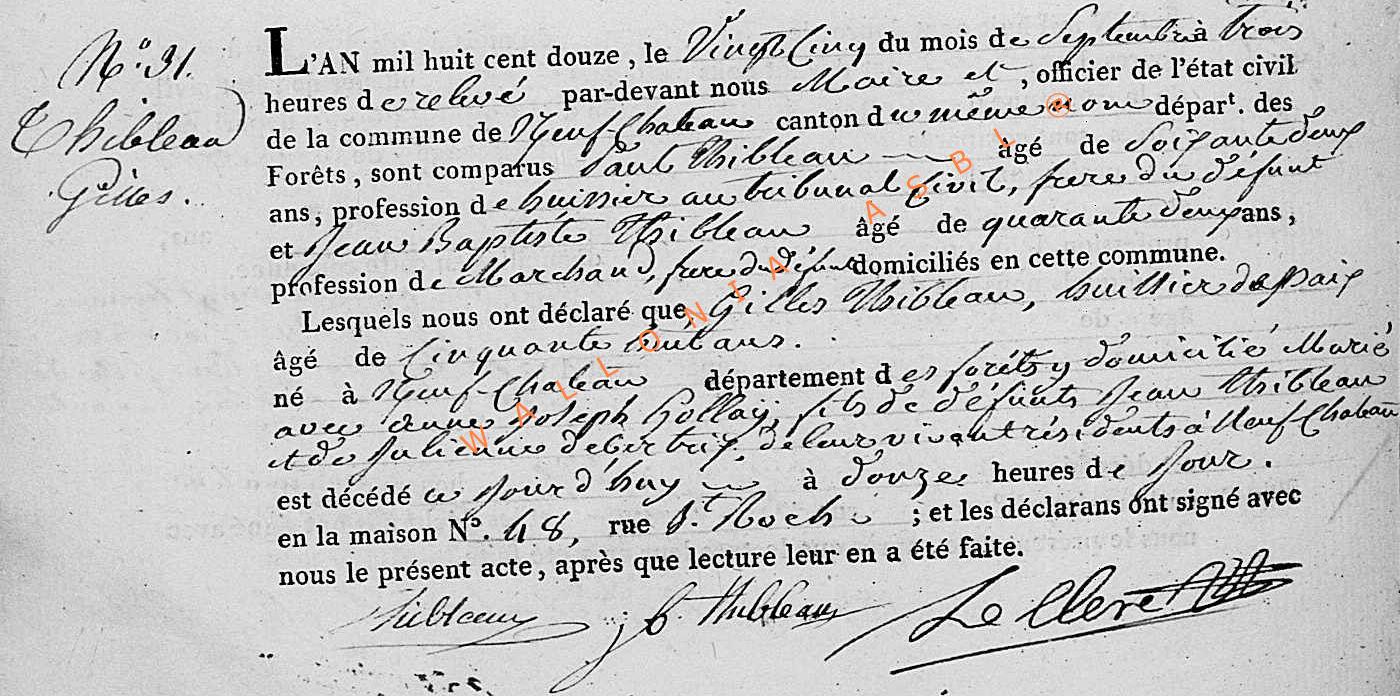 N.° 31.
Thibleau
Gilles.
L'AN mil huit cent douze, le Vingt Cinq du mois de Septembre à trois
heures de relevé par-devant nous Maire et, officier de l'état civil
de la commune de Neuf-Chateau canton du même nom départ. des
Forêts, sont comparus Paul Thibleau âgé de Soixante deux
ans, profession de huissier au tribunal Civil, frere du défunt
et Jean Baptiste Thibleau âgé de quarante deux ans,
profession de Marchand, frere du défunt domiciliés en cette commune.
Lesquels nous ont déclaré que Gilles Thibleau, huissier de paix
âgé de Cinquante huit ans.
né à Neuf-Chateau département des forêts y domicilié Marié
avec anne Joseph Gollay, fils de défunts Jean Thibleau
et de Julienne debertrix, de leur vivant résidents à Neuf Chateau
est décédé ce jour d'huy à douze heures de jour.
en la maison N.° 48, rue St. Roch ; et les déclarans ont signé avec
nous le présent acte, après que lecture leur en a été faite.
Thibleau J b Thibleau Le Clere
WALLONIA ASBL ®